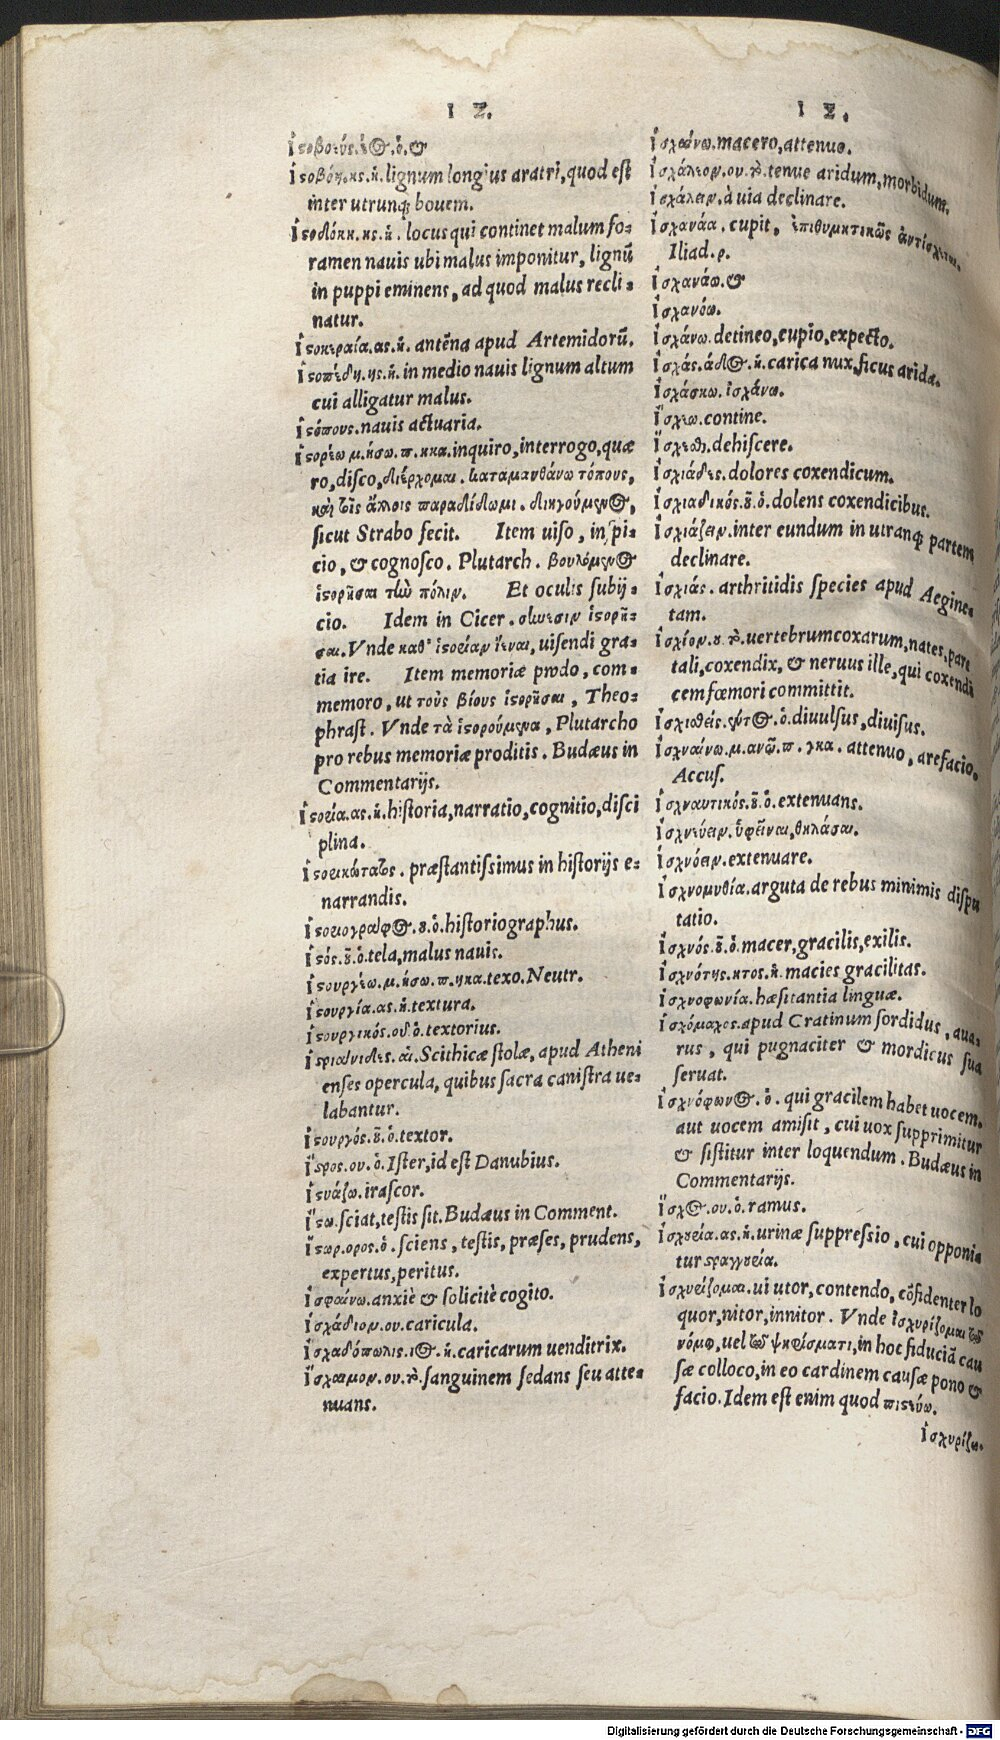 Ι Σ.
ἱστοβοεύς. έος. ὁ. &
ἱστοβόη. ης. ἡ. lignum longius aratri, quod est
inter utrunq; bouem.
ἱστοδόκη. ης. ἡ. locus qui continet malum fo=
ramen nauis ubi malus imponitur, lignũ
in puppi eminens, ad quod malus recli=
natur.
ἱστοκεραία. ας. ἡ. antẽna apud Artemidorũ.
ἱστοπέδη. ης. ἡ. in medio nauis lignum altum
cui alligatur malus.
ἱστόπους. nauis actuaria.
ἱστορέω μ. ήσω. π. ηκα. inquiro, interrogo, quæ
ro, disco, διέρχομαι. καταμανθάνω τόπους,
καὶ τοῖς ἄλλοις παραδίδωμι. διηγούμενος,
sicut Strabo fecit. Item uiso, inspi=
cio, & cognosco. Plutarch. βουλόμενος
ἱστορῆσαι τὴν πόλιν. Et oculis subij=
cio. Idem in Cicer. σύνεσιν ἱστορῆ=
σαι. Vnde καθ' ἱστορίαν ἰέναι, uisendi gra=
tia ire. Item memoriæ prodo, com=
memoro, ut τοὺς βίους ἱστορῆσαι, Theo=
phrast. Vnde τὰ ἱστορούμενα, Plutarcho
pro rebus memoriæ proditis. Budæus in
Commentarijs.
ἱστορία. ας. ἡ. historia, narratio, cognitio, disci
plina.
ἱστορικώτατος. præstantissimus in historijs e=
narrandis.
ἱστοριογράφος. ου. ὁ. historiographus.
ἱστός. οῦ. ὁ. tela, malus nauis.
ἱστουργέω. μ. ήσω. π. ηκα. texo. Neutr.
ἱστουργία. ας. ἡ. textura.
ἱστουργικός. οῦ. ὁ. textorius.
ἰστριανίδες. αἱ. Scithicæ stolæ, apud Atheni
enses opercula, quibus sacra canistra ue=
labantur.
ἱστουργός. οῦ. ὁ. textor.
ἴστρος. ου. ὁ. Ister, id est Danubius.
ἰστυάζω. irascor.
ἴστω. sciat, testis sit. Budæus in Comment.
ἵστωρ. ορος. ὁ. sciens, testis, præses, prudens,
expertus, peritus.
ἰσφαίνω. anxiè & solicitè cogito.
ἰσχάδιον. ου. caricula.
ἰσχαδόπωλις. ιος. ἡ. caricarum uenditrix.
ἴσχαιμον. ου. τὸ. sanguinem sedans seu atte=
nuans.
Ι Σ.
ἰσχαίνω. macero, attenuo.
ἰσχάλεον. ου. τὸ. tenue aridum, morbidum.
ἰσχάλειν. à uia declinare.
ἰσχανάα. cupit, ἐπιθυμητικῶς ἀντίσχεται.
Iliad. ρ.
ἰσχανάω. &
ἰσχανόω.
ἰσχάνω. detineo, cupio, expecto.
ἰσχάς. άδος. ἡ. carica nux, ficus arida.
ἰσχάσκω. ἰσχάνω.
ἴσχεω. contine.
ἴσχεθι. dehiscere.
ἰσχιάδες. dolores coxendicum.
ἰσχιαδικός. οῦ. ὁ. dolens coxendicibus.
ἰσχιάζειν. inter eundum in utranq; partem
declinare.
ἰσχιάς. arthritidis species apud Aegine=
tam.
ἰσχίον. ου. τὸ. uertebrum coxarum, nates, part
tali, coxendix, & neruus ille, qui coxendi
cem fœmori committit.
ἰσχισθείς. έντος. ὁ. diuulsus, diuisus.
ἰσχναίνω. μ. ανῶ. π. γκα. attenuo, arefacio.
Accus.
ἰσχναντικός. οῦ. ὁ. extenuans.
ἰσχνεύειν. ὑφεῖναι, θηλάσαι.
ἰσχνόειν. extenuare.
ἰσχνομυθία. arguta de rebus minimis dispu
tatio.
ἰσχνός. οῦ. ὁ. macer, gracilis, exilis.
ἰσχνότης. ητος. ἡ. macies gracilitas.
ἰσχνοφωνία. hæsitantia linguæ.
ἰσχόμαχος. apud Cratinum sordidus, aua=
rus, qui pugnaciter & mordicus sua
seruat.
ἰσχνόφωνος. ὁ. qui gracilem habet uocem,
aut uocem amisit, cui uox supprimitur
& sistitur inter loquendum. Budæus in
Commentarijs.
ἴσχος. ου. ὁ. ramus.
ἰσχουρία. ας. ἡ. urinæ suppressio, cui opponi=
tur στραγγουρία.
ἰσχυρίζομαι. ui utor, contendo, cõfidenter lo
quor, nitor, innitor. Vnde ἰσχυρίζομαι τῷ
νόμῳ, uel τῷ ψηφίσματι, in hoc fiduciã cau
sæ colloco, in eo cardinem causæ pono &
facio. Idem est enim quod πιστεύω.
ἰσχυρίζω.
Digitalisierung gefördert durch die Deutsche Forschungsgemeinschaft - DFG